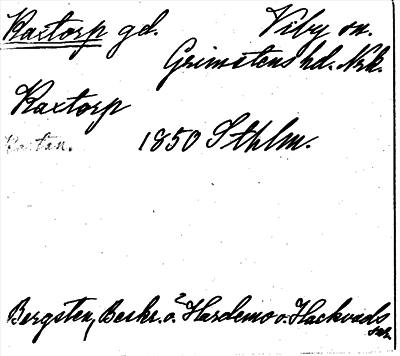 Kaxtorp gd. Viby sn.
Grimstens hd. Nrk.
Kaxtorp
1850 Sthlm.
Bergsten, Beskr. o. Hardemo o. Hackvads